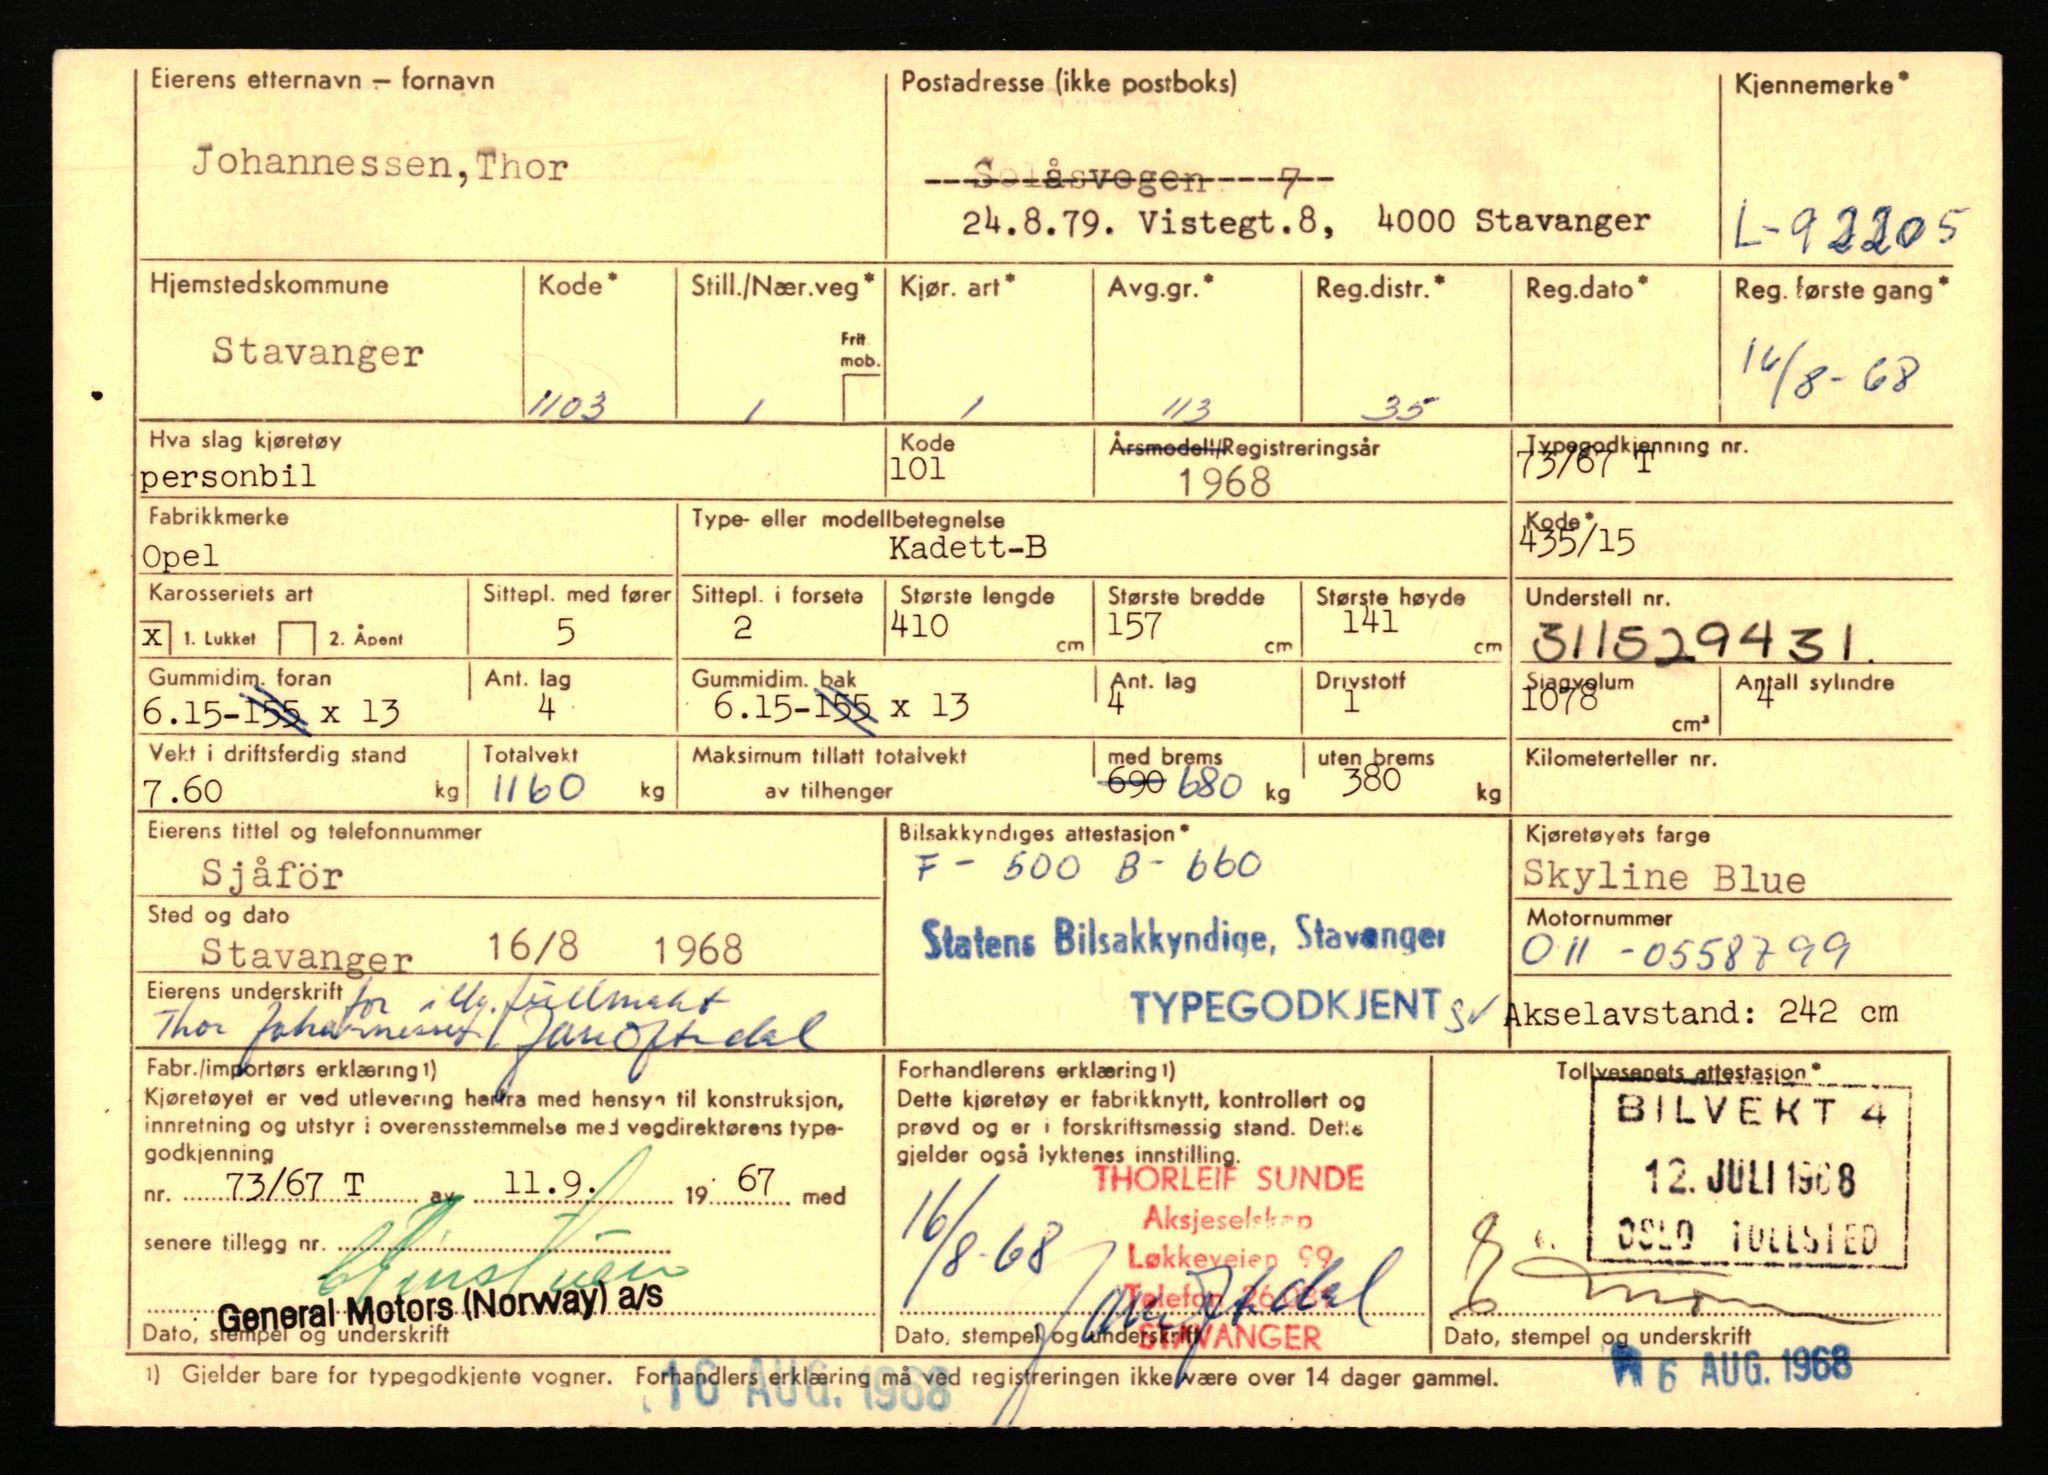 Eierens etternavn – fornavn
Johannessen, Thor
Postadresse (ikke postboks)
Solåsvegen 7
24.8.79. Vistegt.8, 4000 Stavanger
Kjennemerke*
L-92205
Hjemstedskommune
Stavanger
Kode*
1103
Still./Nær.veg*
Frit. mob.
1
Kjør. art*
1
Avg.gr.*
113
Reg.distr.*
35
Reg.dato*
Reg. første gang*
16/8-68
Hva slag kjøretøy
personbil
Kode
101
Årsmodell/Registreringsår
1968
Typegodkjenning nr.
73/67 T
Fabrikkmerke
Opel
Type- eller modellbetegnelse
Kadett-B
Kode*
435/15
Karosseriets art
X 1. Lukket 2. Åpent
Sittepl. med fører
5
Sittepl. i forsete
2
Største lengde
410 cm
Største bredde
157 cm
Største høyde
141 cm
Understell nr.
311529431.
Gummidim. foran
6.15-155 x 13
Ant. lag
4
Gummidim. bak
6.15-155 x 13
Ant. lag
4
Drivstoff
1
Slagvolum
1078 cm³
Antall sylindre
4
Vekt i driftsferdig stand
7.60 kg
Totalvekt
1160 kg
Maksimum tillatt totalvekt
av tilhenger
med brems
690 680 kg
uten brems
380 kg
Kilometerteller nr.
Eierens tittel og telefonnummer
Sjåför
Bilsakkyndiges attestasjon*
F - 500 B - 660
Statens Bilsakkyndige, Stavanger
TYPEGODKJENT
Kjøretøyets farge
Skyline Blue
Sted og dato
Stavanger 16/8 1968
Motornummer
011 -0558799
Eierens underskrift
for iflg. fullmakt
Thor Johannessen
Akselavstand: 242 cm
Fabr./importørs erklæring1)
Kjøretøyet er ved utlevering herfra med hensyn til konstruksjon,
innretning og utstyr i overensstemmelse med vegdirektørens type-
godkjenning
nr. 73/67 T av 11.9. 19 67 med
senere tillegg nr.
General Motors (Norway) a/s
Dato, stempel og underskrift
Forhandlerens erklæring1)
Dette kjøretøy er fabrikknytt, kontrollert og
prøvd og er i forskriftsmessig stand. Dette
gjelder også lyktenes innstilling.
THORLEIF SUNDE
Aksjeselskap
Løkkeveien 99
Telefon
STAVANGER
16/8-68
Dato, stempel og underskrift
Tollvesenets attestasjon*
BILVEKT 4
12. JULI 1968
OSLO TOLLSTED
Dato, stempel og underskrift
1) Gjelder bare for typegodkjente vogner. Forhandlers erklæring må ved registreringen ikke være over 14 dager gammel.
16 AUG. 1968
6 AUG. 1968